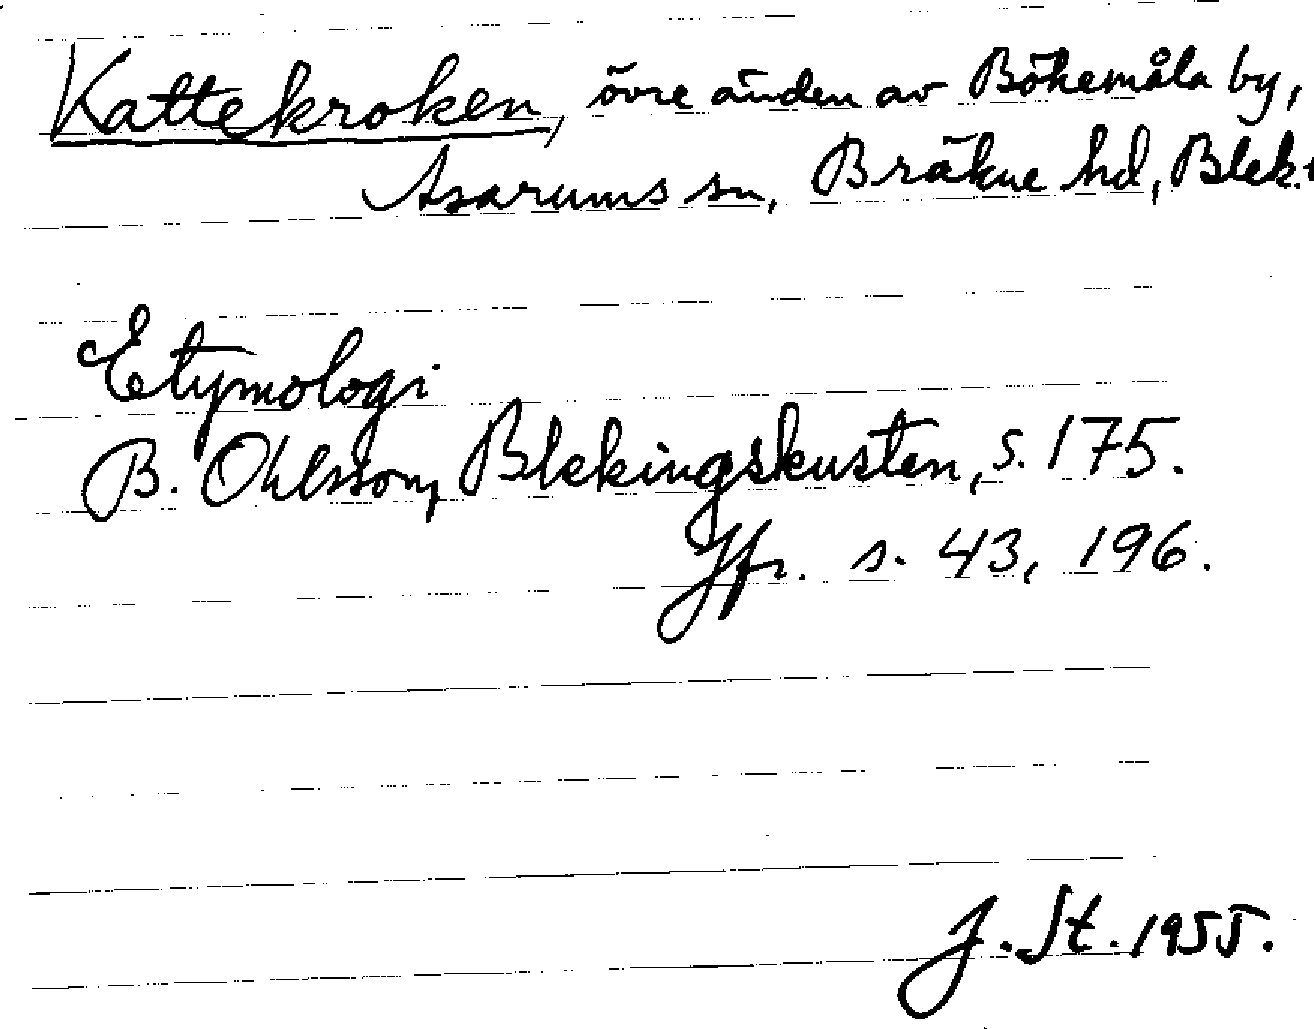 Kattekroken, övre änden av Bökemåla by,
Asarums sn, Bräkne hd, Blek.
Etymologi
B. Ohlsson, Blekingskusten, s. 175.
Jfr. s. 43, 196.
J. St. 1955.